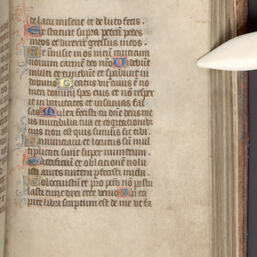 de lacu miserie et de luto fecis.
Et statuit supra petram pedes
meos et direxit gressus meos.
Et immisit in os meum canticum
novum carmen deo nro Videbunt
multi et timebunt et sperabunt in
domino Beatus vir cuius e no
men domini spes eius et no respex
it in vanitates et insanias fal
sas Multa fecisti tu dne deus me
us mirabilia tua et cogitationib
tuis non est quis similis sit tibi.
Annunciavi et locutus su mul
tiplicati sunt super numerum.
Sacrificiu et oblatione nolu
isti aures autem pfecisti michi.
Holocaustu et pro pcto no postu
lasti tunc dixi ecce venio In ca
pite libri scriptum est de me ut fa